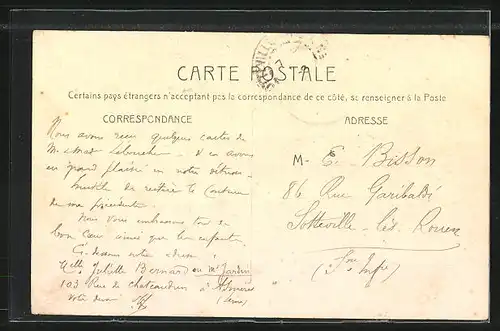 CARTE POSTALE
Certains pays étrangers n'acceptant pas la correspondance de ce côté, se renseigner à la Poste
CORRESPONDANCE
ADRESSE
Nous avons reçu quelques cartes de
M. et Mad. - et en avons
eu grand plaisir en notre
de
de ma précédente
Nous vous embrassons tous de
bon cœur ainsi que les enfants.
Ci-dessous notre adresse
Melle Juliette Bernard ou Mr Jardin
103 Rue de Chateaudun à Asnières
(Seine)
Votre
M- E. Bisson
86 Rue Garibaldi
Sotteville-lès-Rouen
(Sne Infre)